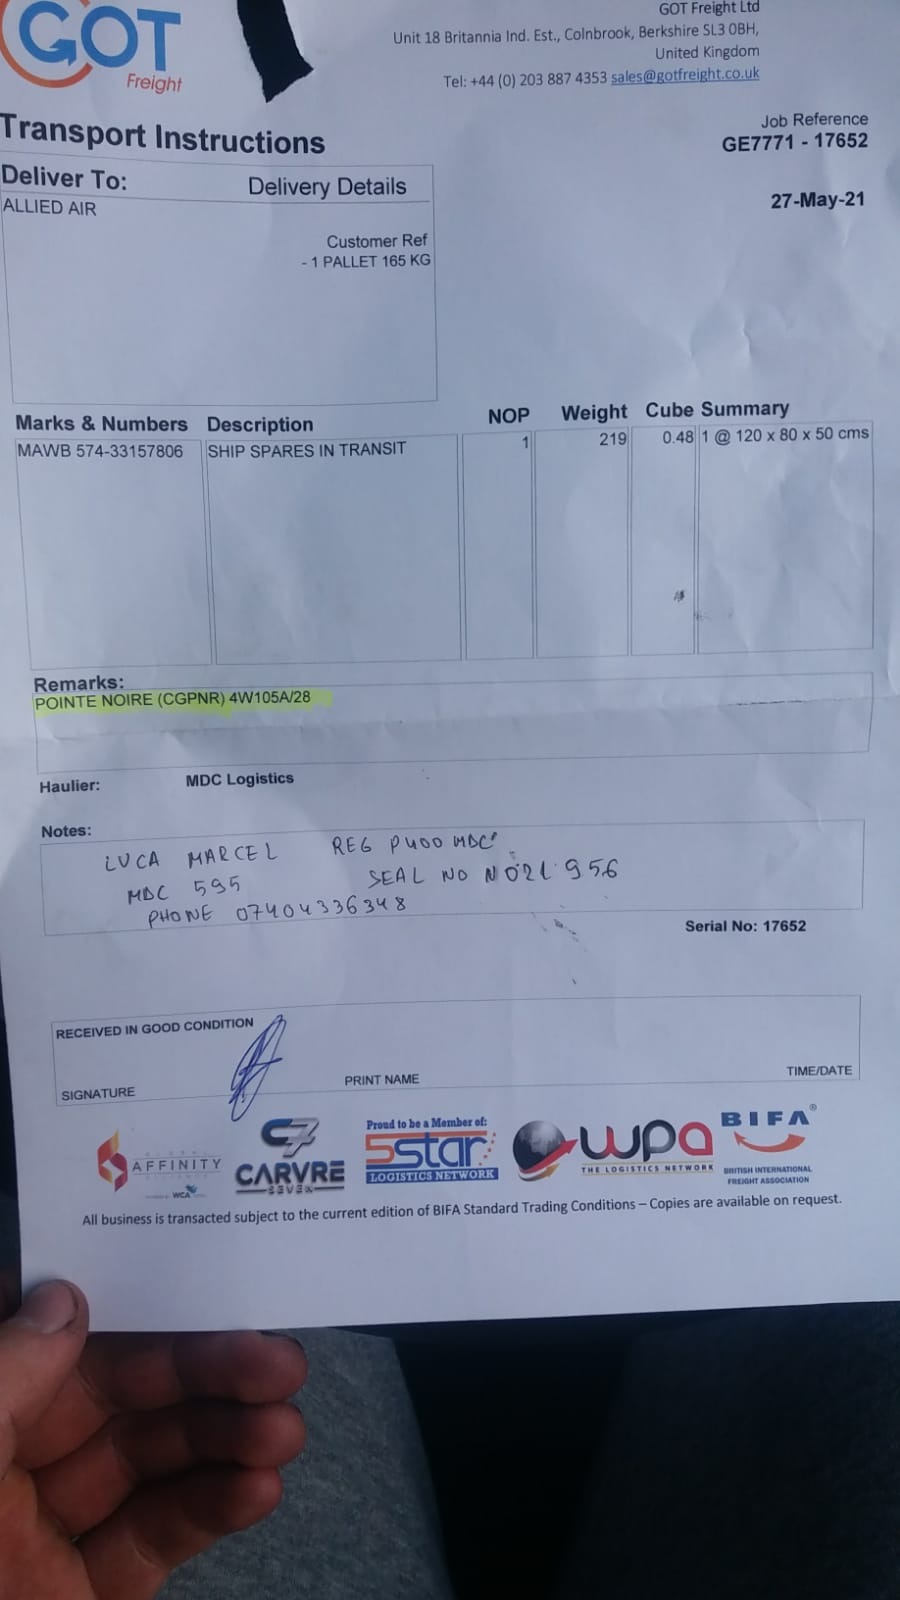 GOT
Freight
GOT Freight Ltd
Unit 18 Britannia Ind. Est., Colnbrook, Berkshire SL3 0BH,
United Kingdom
Tel: +44 (0) 203 887 4353 sales@gotfreight.co.uk
Transport Instructions
Job Reference
GE7771 - 17652
27-May-21
Deliver To:
Delivery Details
ALLIED AIR
Customer Ref
- 1 PALLET 165 KG
Marks & Numbers Description NOP Weight Cube Summary
MAWB 574-33157806 SHIP SPARES IN TRANSIT 1 219 0.48 1 @ 120 x 80 x 50 cms
Remarks:
POINTE NOIRE (CGPNR) 4W105A/28
Haulier: MDC Logistics
Notes:
LUCA MARCEL REG P400 MDC
MDC 595 SEAL NO N021956
PHONE 07404336348
Serial No: 17652
RECEIVED IN GOOD CONDITION
SIGNATURE
PRINT NAME
TIME/DATE
AFFINITY
WCA
C7
CARVRE
SEVEN
Proud to be a Member of:
5star
LOGISTICS NETWORK
wpa
THE LOGISTICS NETWORK
BIFA®
BRITISH INTERNATIONAL
FREIGHT ASSOCIATION
All business is transacted subject to the current edition of BIFA Standard Trading Conditions – Copies are available on request.